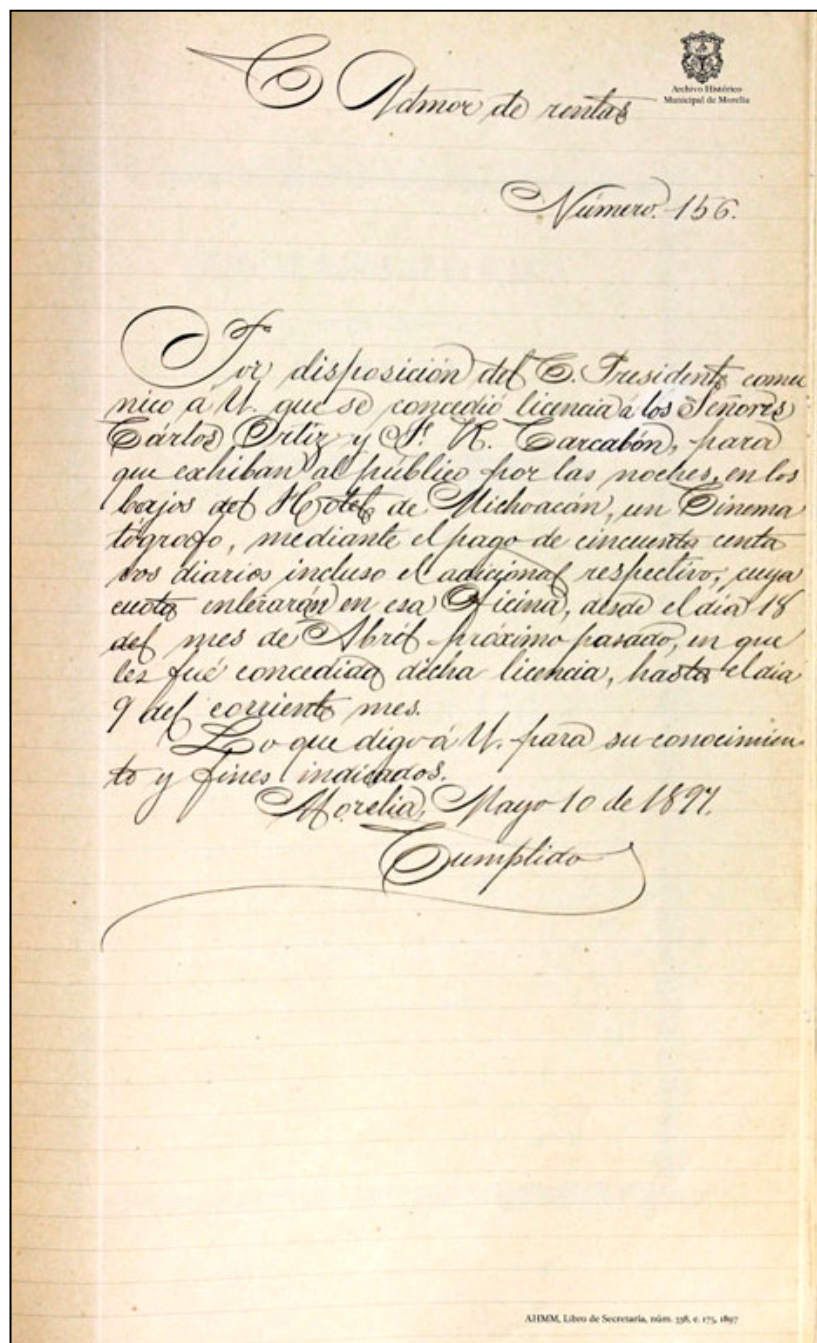 C Admor de rentas
Archivo Histórico
Municipal de Morelia
Número. 156.
Por disposición del C. Presidente comu
nico á U. que se concedió licencia á los Señores
Cárlos Ortiz y P. R. Carcabón, para
que exhiban al público por las noches, en los
bajos del Hotel de Michoacán, un Cinema
tógrafo, mediante el pago de cincuenta centa
vos diarios incluso el adicional respectivo; cuya
cuota enterarán en esa Oficina, desde el día 18
del mes de Abril próximo pasado, en que
les fué concedida dicha licencia, hasta el día
9 del corriente mes.
Lo que digo á U. para su conocimien
to y fines indicados.
Morelia, Mayo 10 de 1897.
Cumplido
AHMM, Libro de Secretaría, núm. 338, e. 175, 1897